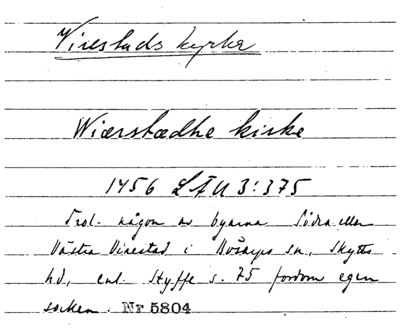 Virestads kyrka
Wiærstædhe kirke
1456 LÄU 3:375
Trol. någon av byarna Södra eller
Västra Virestad i Bösarps sn, Skytts
hd, enl. Styffe s. 75 fordom egen
socken. Nr 5804